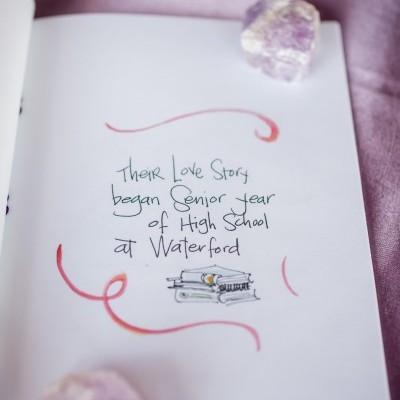 Their Love Story
began Senior year
of High School
at Waterford